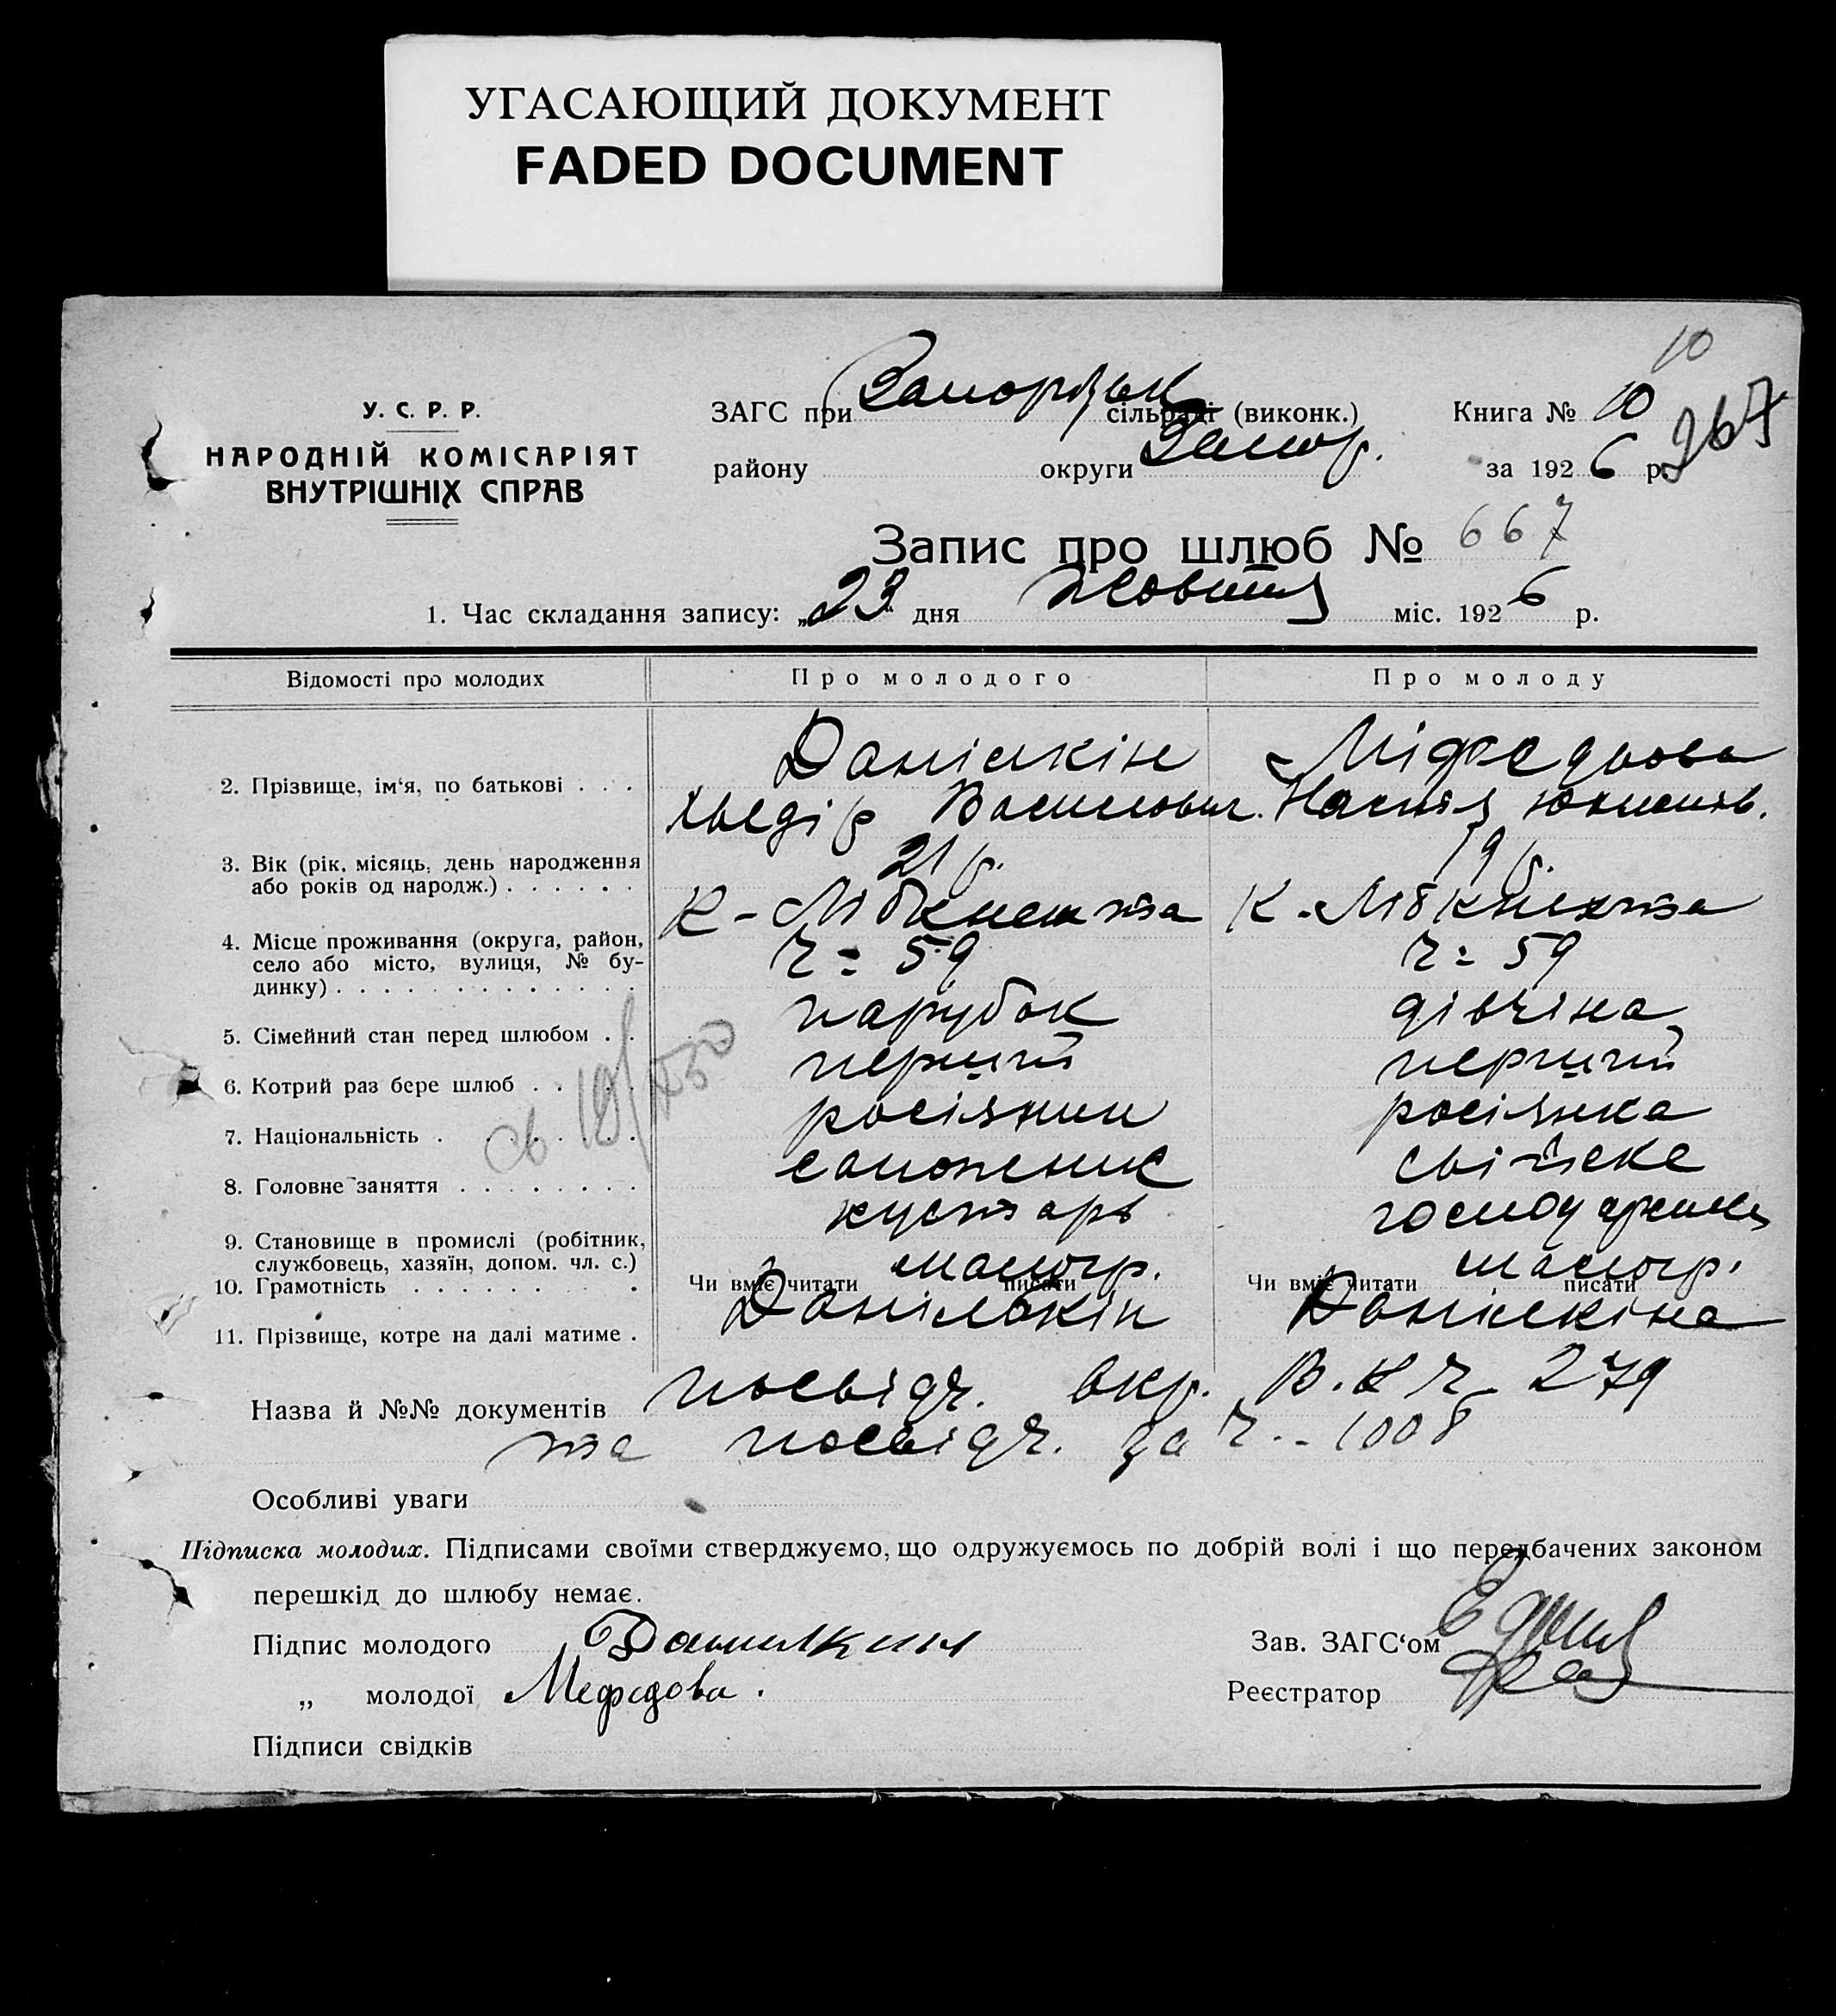 УГАСАЮЩИЙ ДОКУМЕНТ
FADED DOCUMENT
10
У. С. Р. Р.
НАРОДНІЙ КОМІСАРІЯТ
ВНУТРІШНІХ СПРАВ
ЗАГС при Запорізьк сільраді (виконк.) Книга № 10
267
району округи Запор. за 1926 р.
Запис про шлюб № 667
1. Час складання запису: „23“ дня Жовтня міс. 1926 р.
Відомості про молодих Про молодого Про молоду
2. Прізвище, ім‘я, по батькові . . . Данілкін
Хведір Васильович.
Міфедьова
Настя
3. Вік (рік, місяць, день народження
або років од народж.) . . . . . . 21 р. 19 р.
4. Місце проживання (округа, район,
село або місто, вулиця, № бу-
динку) . . . . . . . . . . . . .
К - Лібкнехта
ч = 59
К. Лібкнехта
ч = 59
5. Сімейний стан перед шлюбом . . парубок дівчіна
6. Котрий раз бере шлюб . . . . . перший перший
7. Національність . . . . . . . . росіянин росіянка
8. Головне заняття . . . . . . . . сапожник свійске
9. Становище в промислі (робітник,
службовець, хазяїн, допом. чл. с.)
кустарь господарка
10. Грамотність . . . . . . . . Чи вміє читати малогр. писати Чи вміє читати малогр. писати
11. Прізвище, котре на далі матиме . Данількін Данілкіна
Назва й №№ документів посвідч. окр. В.К ч - 279
та посвідч. за ч. - 1008
Особливі уваги
Підписка молодих. Підписами своїми стверджуємо, що одружуємось по добрій волі і що передбачених законом
перешкід до шлюбу немає.
Підпис молодого Данилкин Зав. ЗАГС‘ом
„ молодої Мефедова. Реєстратор
Підписи свідків